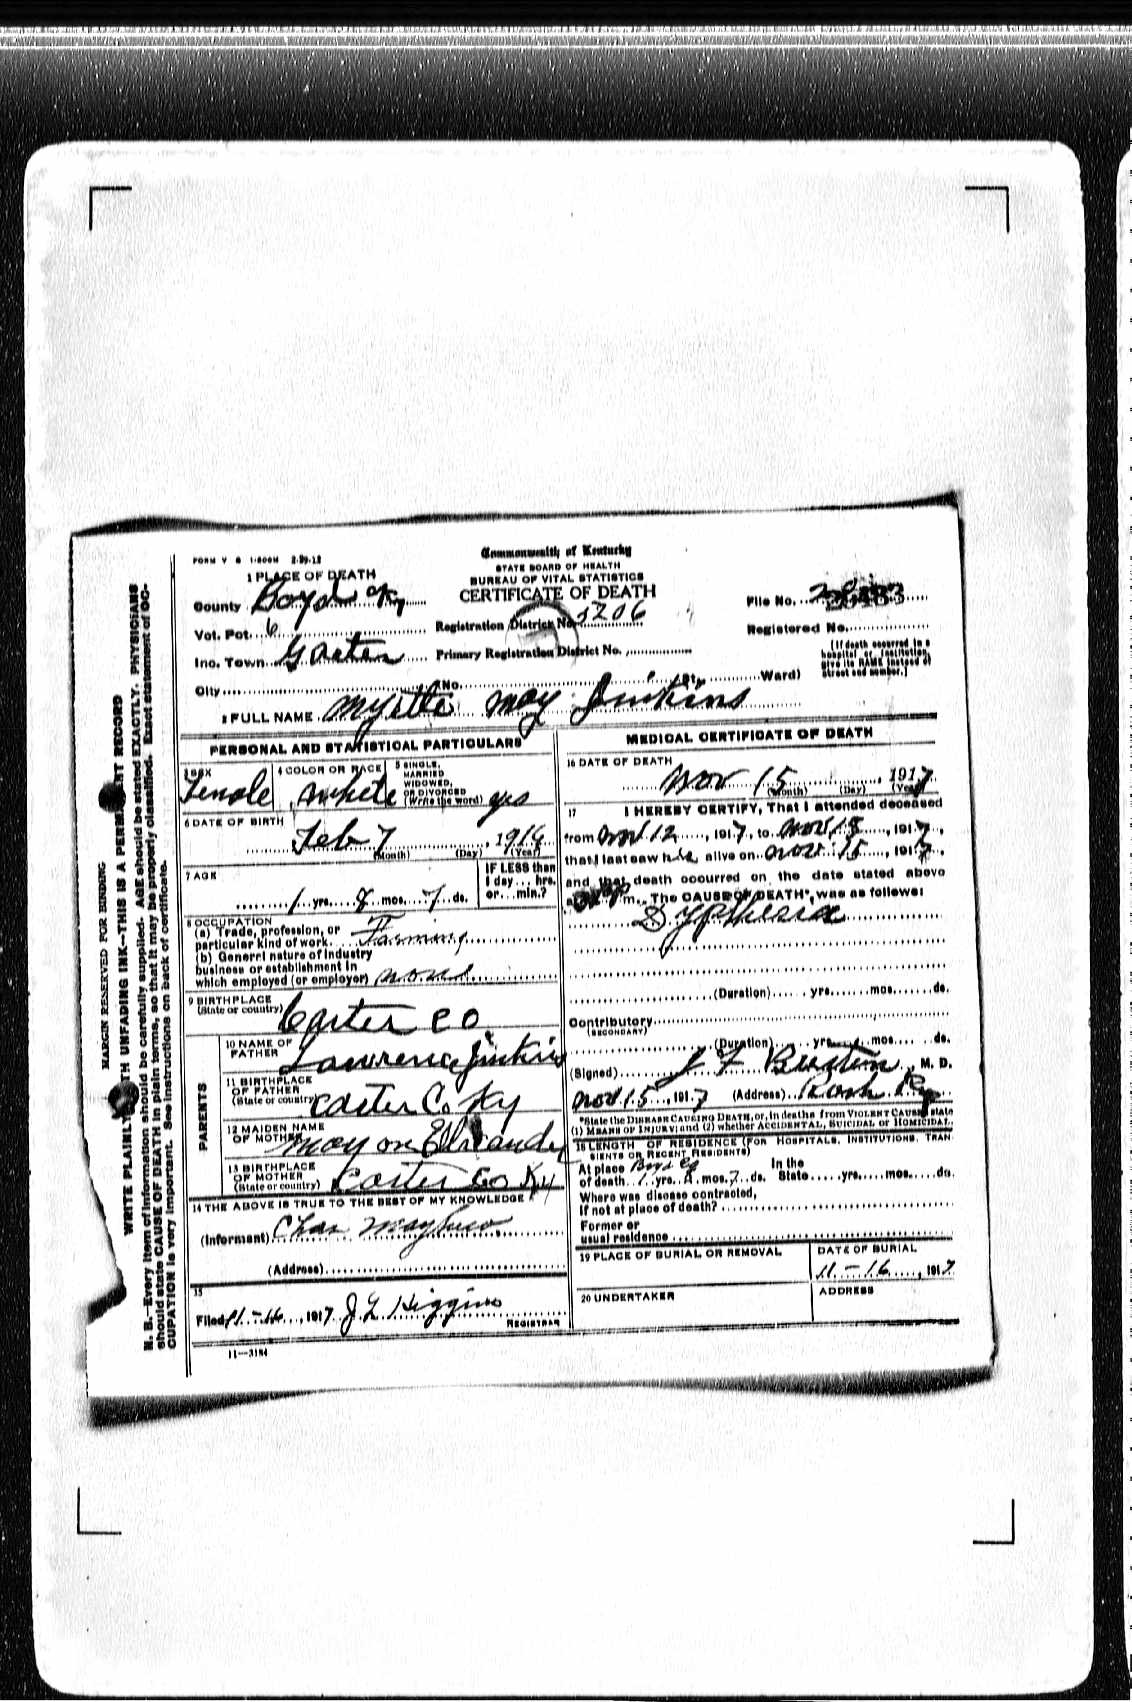 MARGIN RESERVED FOR BINDING
N. B.—Every item of information should be carefully supplied. AGE should be stated EXACTLY. PHYSICIANS
should state CAUSE OF DEATH in plain terms, so that it may be properly classified. Exact statement of OC-
CUPATION is very important. See instructions on back of certificate.
FORM V S 1-500M 2-29-12
Commonwealth of Kentucky
STATE BOARD OF HEALTH
BUREAU OF VITAL STATISTICS
CERTIFICATE OF DEATH
1 PLACE OF DEATH
County Boyd Ky
Vot. Pct. 6
Inc. Town
City No. St., Ward)
Registration District No. 5206
Primary Registration District No.
File No.
Registered No.
[If death occurred in a
hospital or institution,
give its NAME instead of
street and number.]
2 FULL NAME Myrtle May Jinkins
PERSONAL AND STATISTICAL PARTICULARS
3 SEX Female
4 COLOR OR RACE White
5 SINGLE,
MARRIED
WIDOWED,
OR DIVORCED
(Write the word) yes
6 DATE OF BIRTH
Feb 7, 1916
(Month) (Day) (Year)
7 AGE
1 yrs. 8 mos. 7 ds.
IF LESS than
1 day... hrs.
or...min.?
8 OCCUPATION
(a) Trade, profession, or
particular kind of work Farming
(b) General nature of industry
business or establishment in
which employed (or employer) none
9 BIRTHPLACE
(State or country) Carter Co
PARENTS
10 NAME OF
FATHER Lawrence Jinkins
11 BIRTHPLACE
OF FATHER
(State or country) Carter Co Ky
12 MAIDEN NAME
OF MOTHER
13 BIRTHPLACE
OF MOTHER
(State or country) Carter Co Ky
14 THE ABOVE IS TRUE TO THE BEST OF MY KNOWLEDGE
(Informant) Chas
(Address)
15
Filed 11-16, 1917 J L Higgins
REGISTRAR
11—3184
MEDICAL CERTIFICATE OF DEATH
16 DATE OF DEATH
Nov 15, 1917
(Month) (Day) (Year)
17 I HEREBY CERTIFY, That I attended deceased
from Nov 12, 1917, to Nov 15, 1917,
that I last saw h alive on Nov 15, 1917,
and that death occurred on the date stated above
at m. The CAUSE OF DEATH*, was as follows:
Dyptheria
(Duration) yrs. mos. ds.
Contributory
(SECONDARY)
(Duration) yrs. mos. ds.
(Signed) J F , M. D.
Nov 15, 1917 (Address) Rush Ky
*State the DISEASE CAUSING DEATH, or, in deaths from VIOLENT CAUSES state
(1) MEANS OF INJURY; and (2) whether ACCIDENTAL, SUICIDAL or HOMICIDAL.
18 LENGTH OF RESIDENCE (FOR HOSPITALS, INSTITUTIONS, TRAN
SIENTS OR RECENT RESIDENTS)
At place Boyd Co In the
of death 1 yrs. 8 mos. 7 ds. State yrs. mos. ds.
Where was disease contracted,
if not at place of death?
Former or
usual residence
19 PLACE OF BURIAL OR REMOVAL
DATE OF BURIAL
11-16, 1917
20 UNDERTAKER
ADDRESS